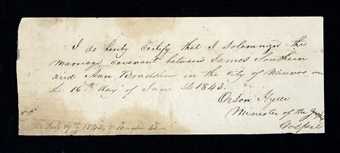 I do hereby certify that I solemnized the
marriage covenant between James Southern
and Ann Bradshaw in the City of Nauvoo on
the 16th day of June AD 1843.
Orson Hyde
Minister of the
Gospel
1843,